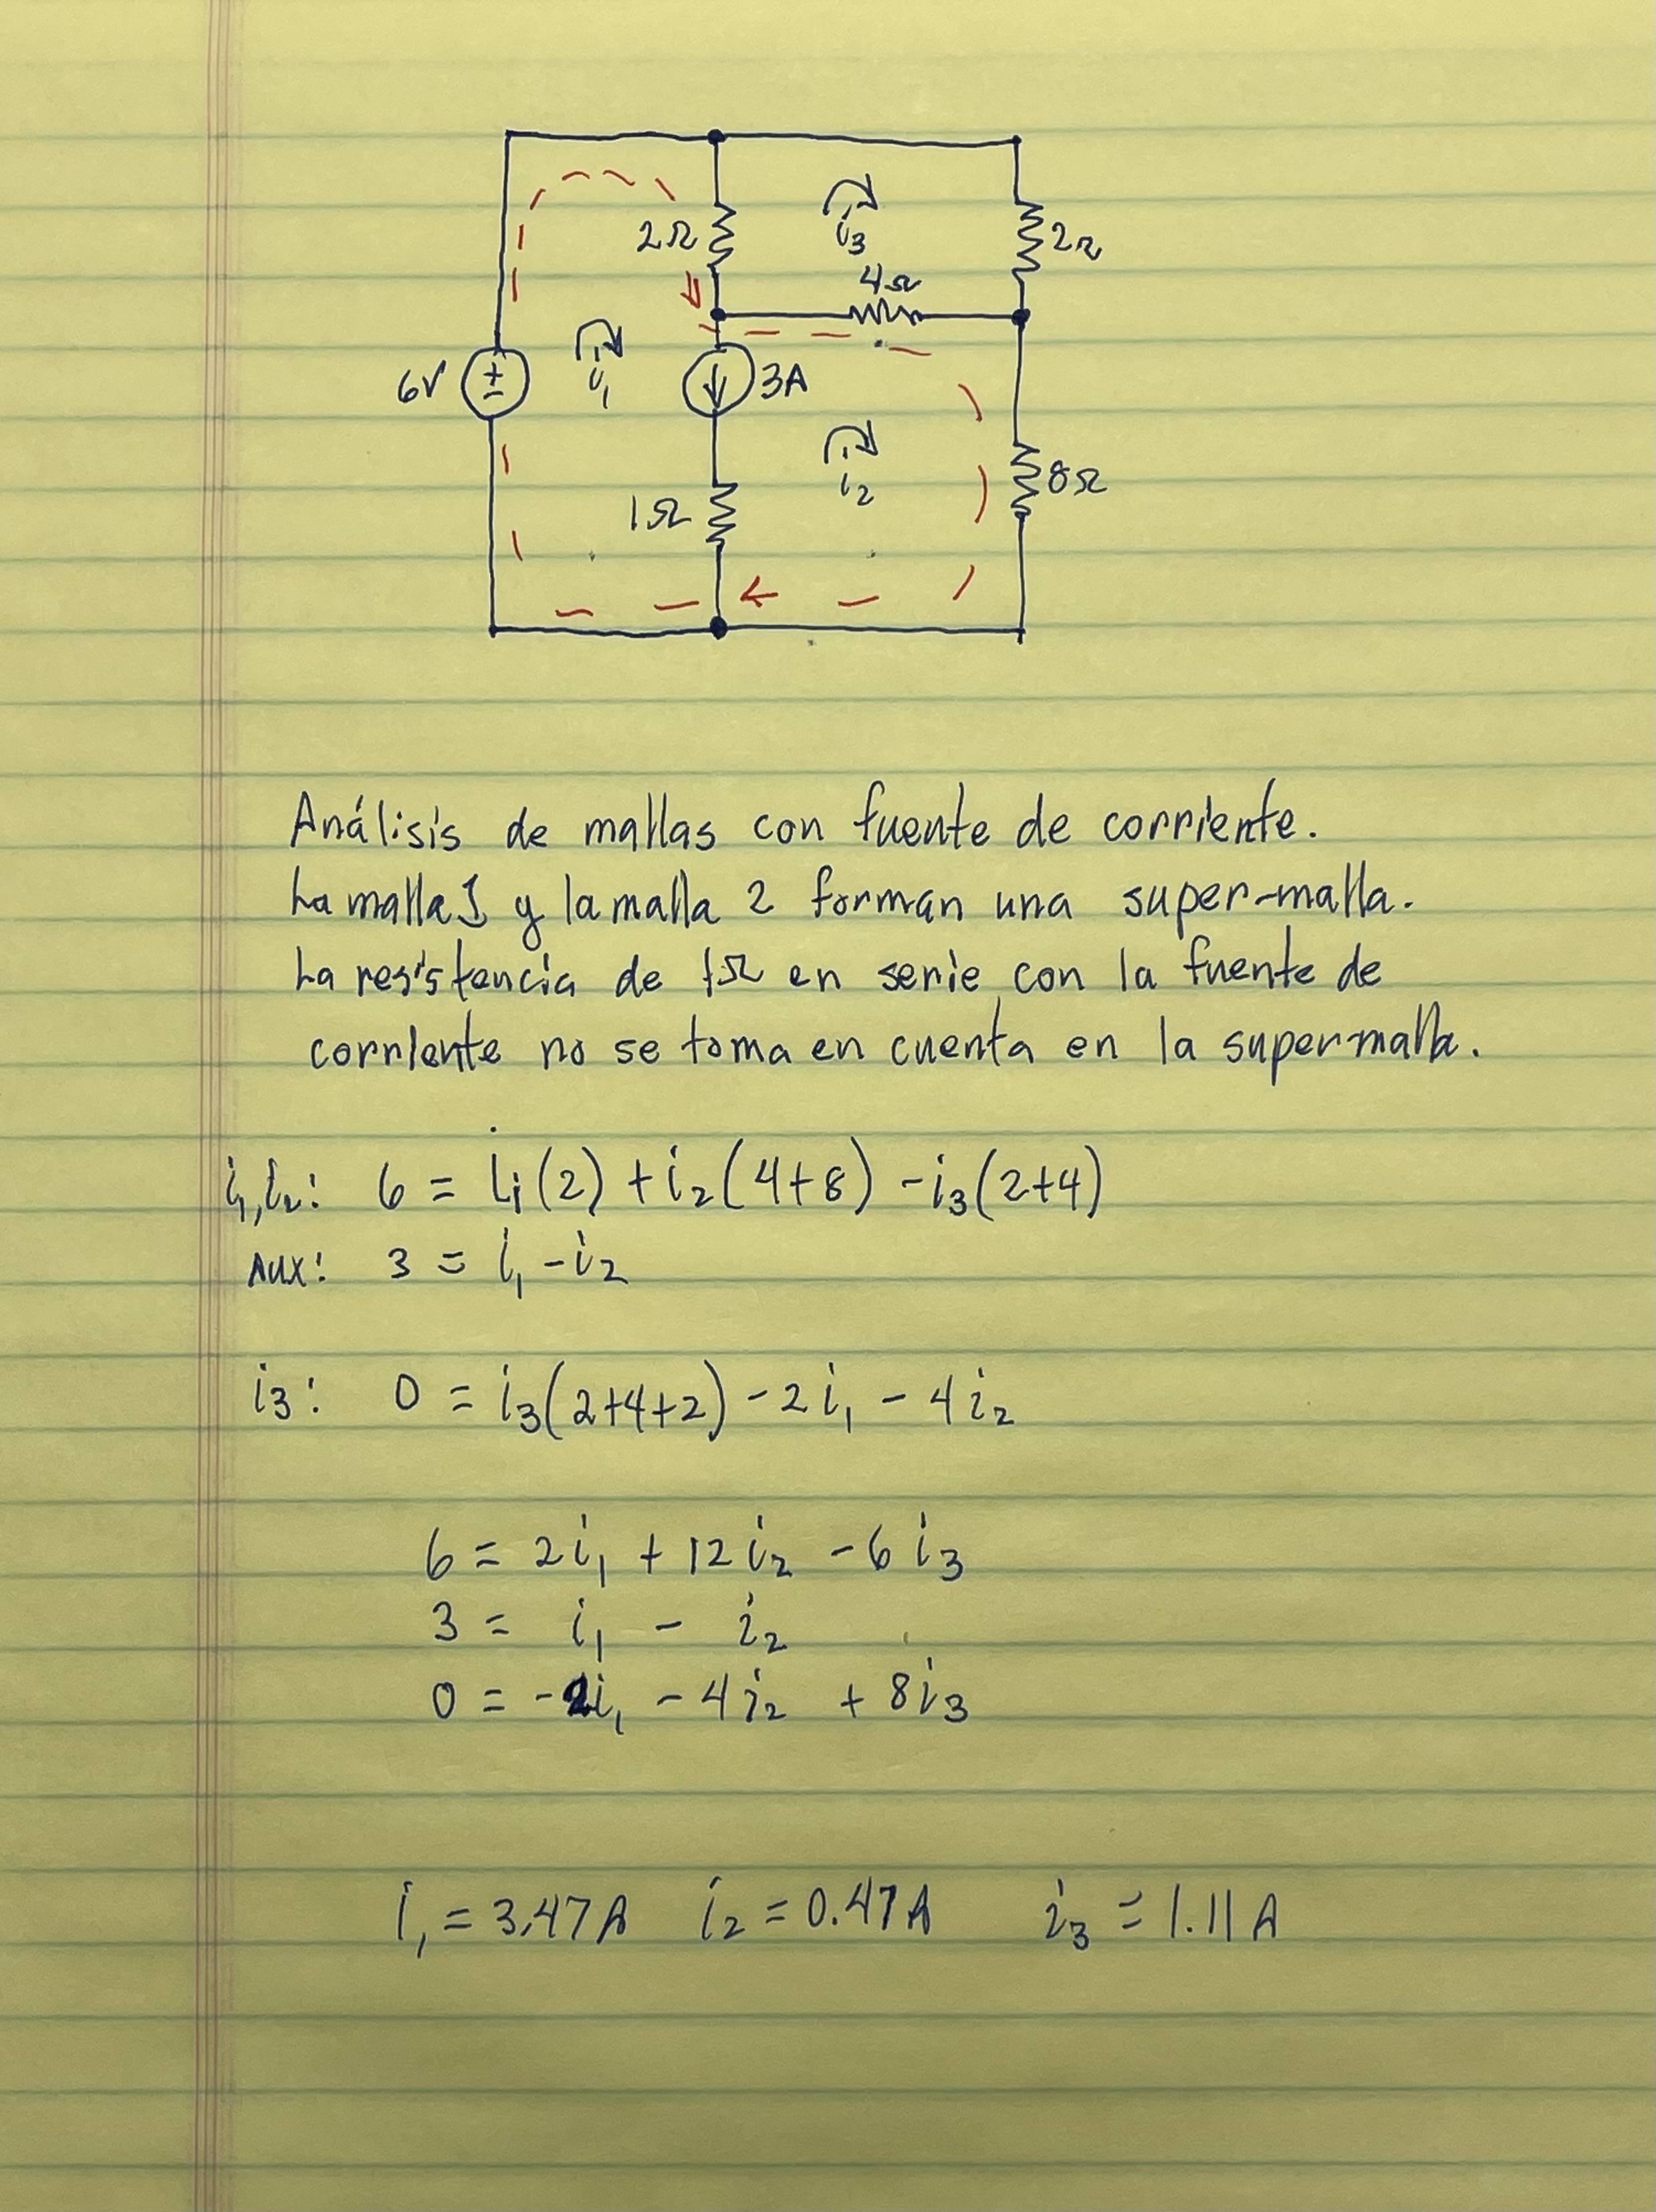 2Ω
i₃
2Ω
4Ω
6V
i₁
3A
i₂
1Ω
8Ω
Análisis de mallas con fuente de corriente.
La malla 1 y la malla 2 forman una super-malla.
La resistencia de 1Ω en serie con la fuente de
corriente no se toma en cuenta en la supermalla.
i₁,i₂: 6 = i₁(2) + i₂(4+8) - i₃(2+4)
Aux: 3 = i₁ - i₂
i₃: 0 = i₃(2+4+2) - 2i₁ - 4i₂
6 = 2i₁ + 12i₂ - 6i₃
3 = i₁ - i₂
0 = -2i₁ - 4i₂ + 8i₃
i₁ = 3.47A i₂ = 0.47A i₃ = 1.11A